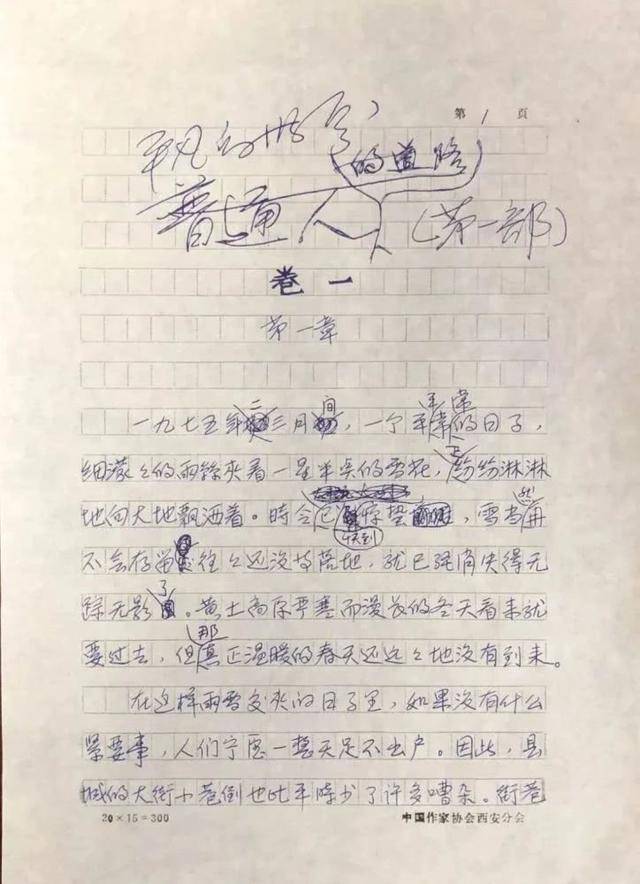 第 1 頁
平凡的世界
的道路
普通人
(第一部)
卷一
第一章
间 平常
一九七五年二三月，一个平常的日子，
细濛々的雨絲夹着一星半点的雪花，正纷纷淋淋
地向大地飘洒着。時令已快到惊蛰，雪当然再
不会存留，往々还没等落地，就已经消失得无
踪无影了。黄土高原严寒而漫长的冬天看来就
要过去，但那真正温暖的春天还远々地没有到来。
在这样雨雪交夹的日子里，如果没有什么
紧要事，人们宁愿一整天足不出户。因此，县
城的大街小巷倒也比平時少了许多嘈杂。街巷
20×15=300
中国作家协会西安分会